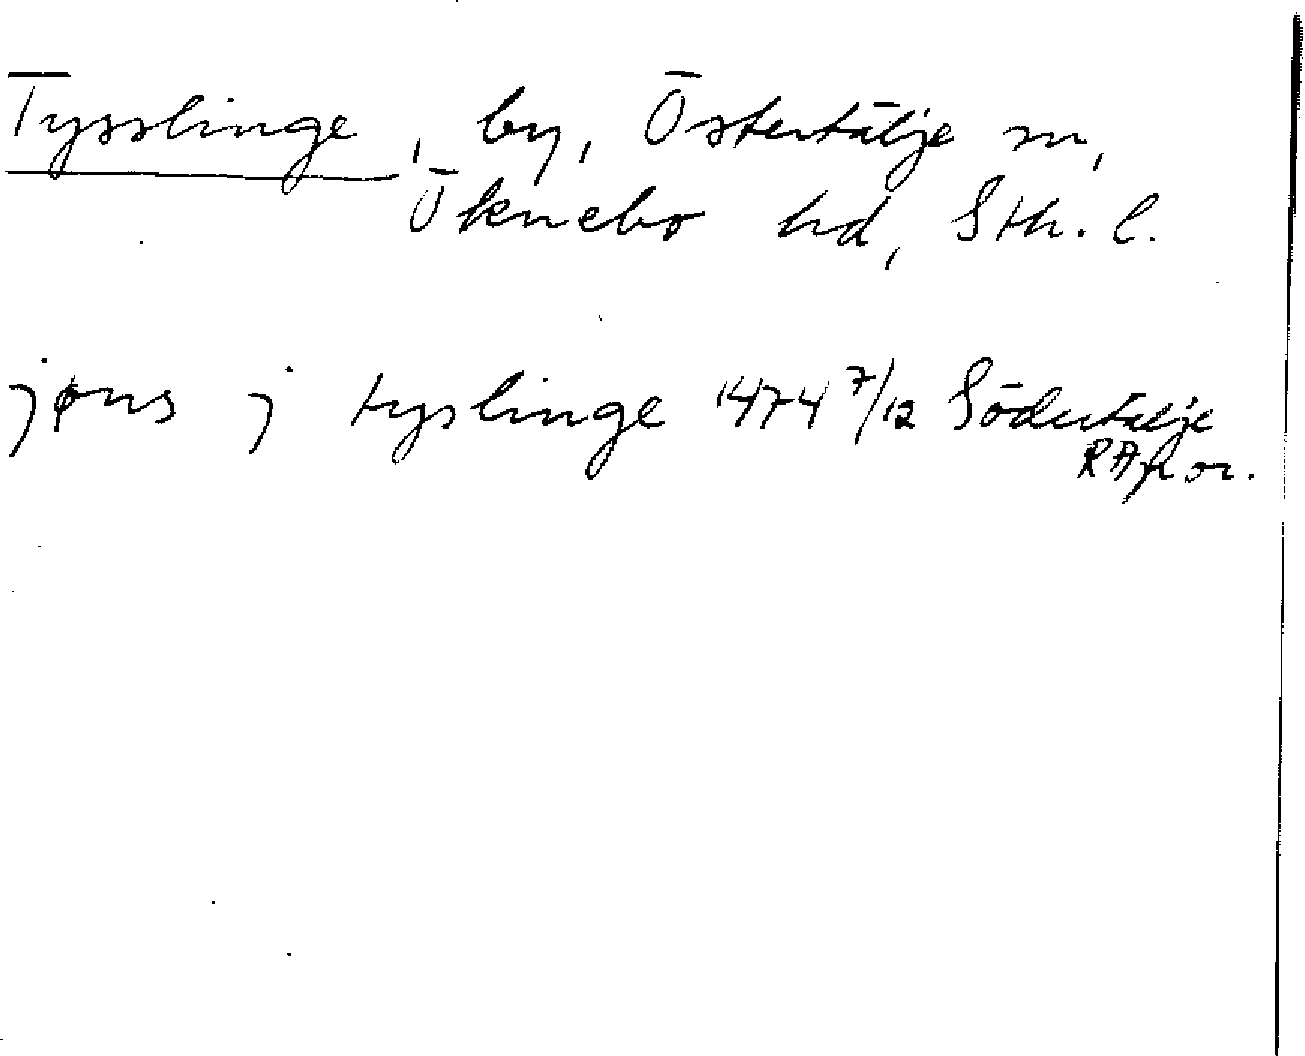 Tysslinge, by, Östertälje sn,
Öknebo hd, Sth. l.
jøns j tyslinge 1474 7/12 Södertälje
RAp or.